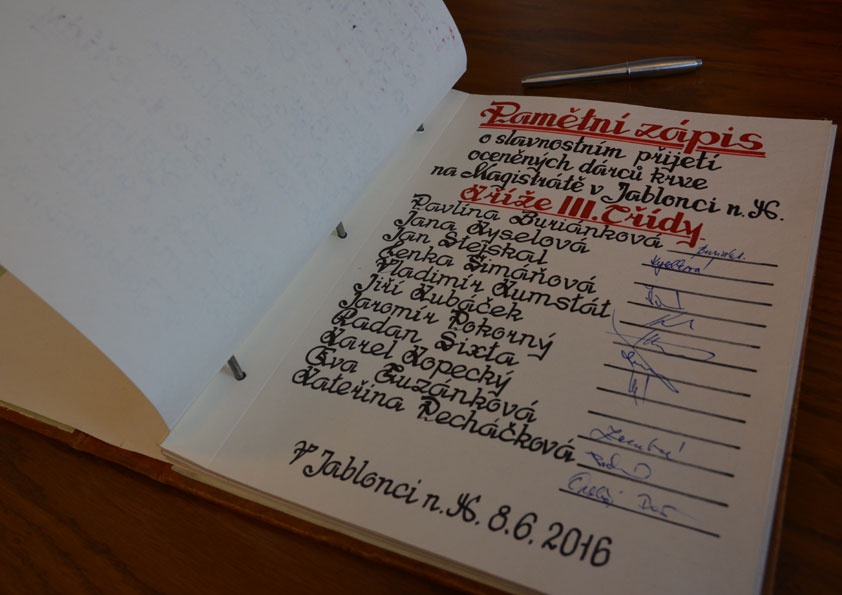 Pamětní zápis
o slavnostním přijetí
oceněných dárců krve
na Magistrátě v Jablonci n. N.
Kříže III. Třídy
Pavlína Buriánková
Jana Kyselová
Jan Stejskal
Lenka Šimáňová
Vladimír Kumstát
Jiří Kubáček
Jaromír Pokorný
Radan Sixta
Karel Kopecký
Eva Fuzánková
Kateřina Pecháčková
V Jablonci n. N. 8.6. 2016